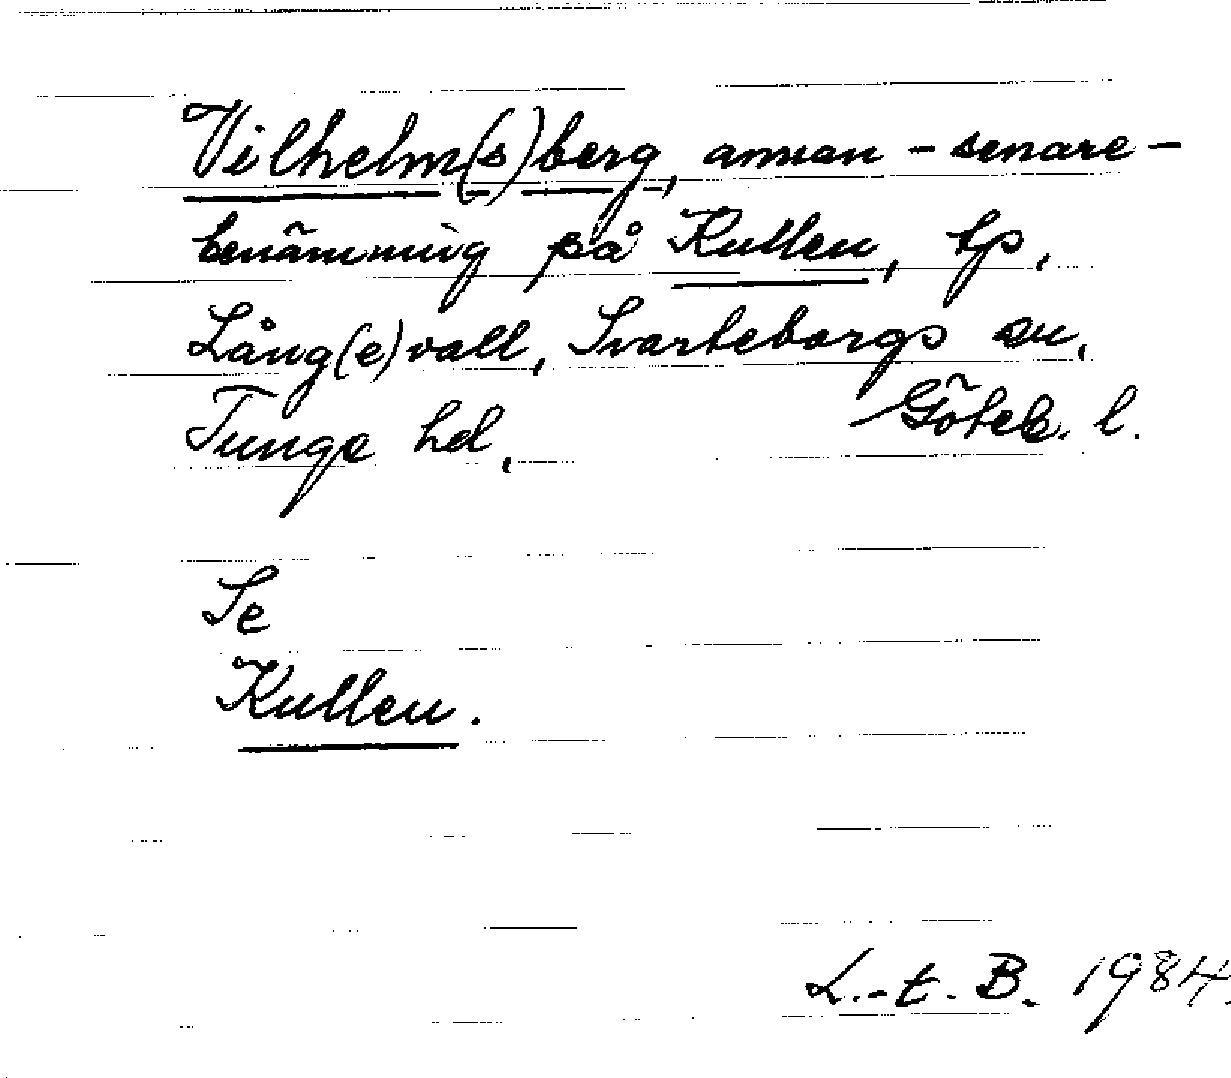 Vilhelm(s)berg, annan - senare -
benämning på Kullen, tp,
Lång(e)vall, Svarteborgs sn,
Tunge hd, Göteb. l.
Se
Kullen.
L.-t. B. 1984.